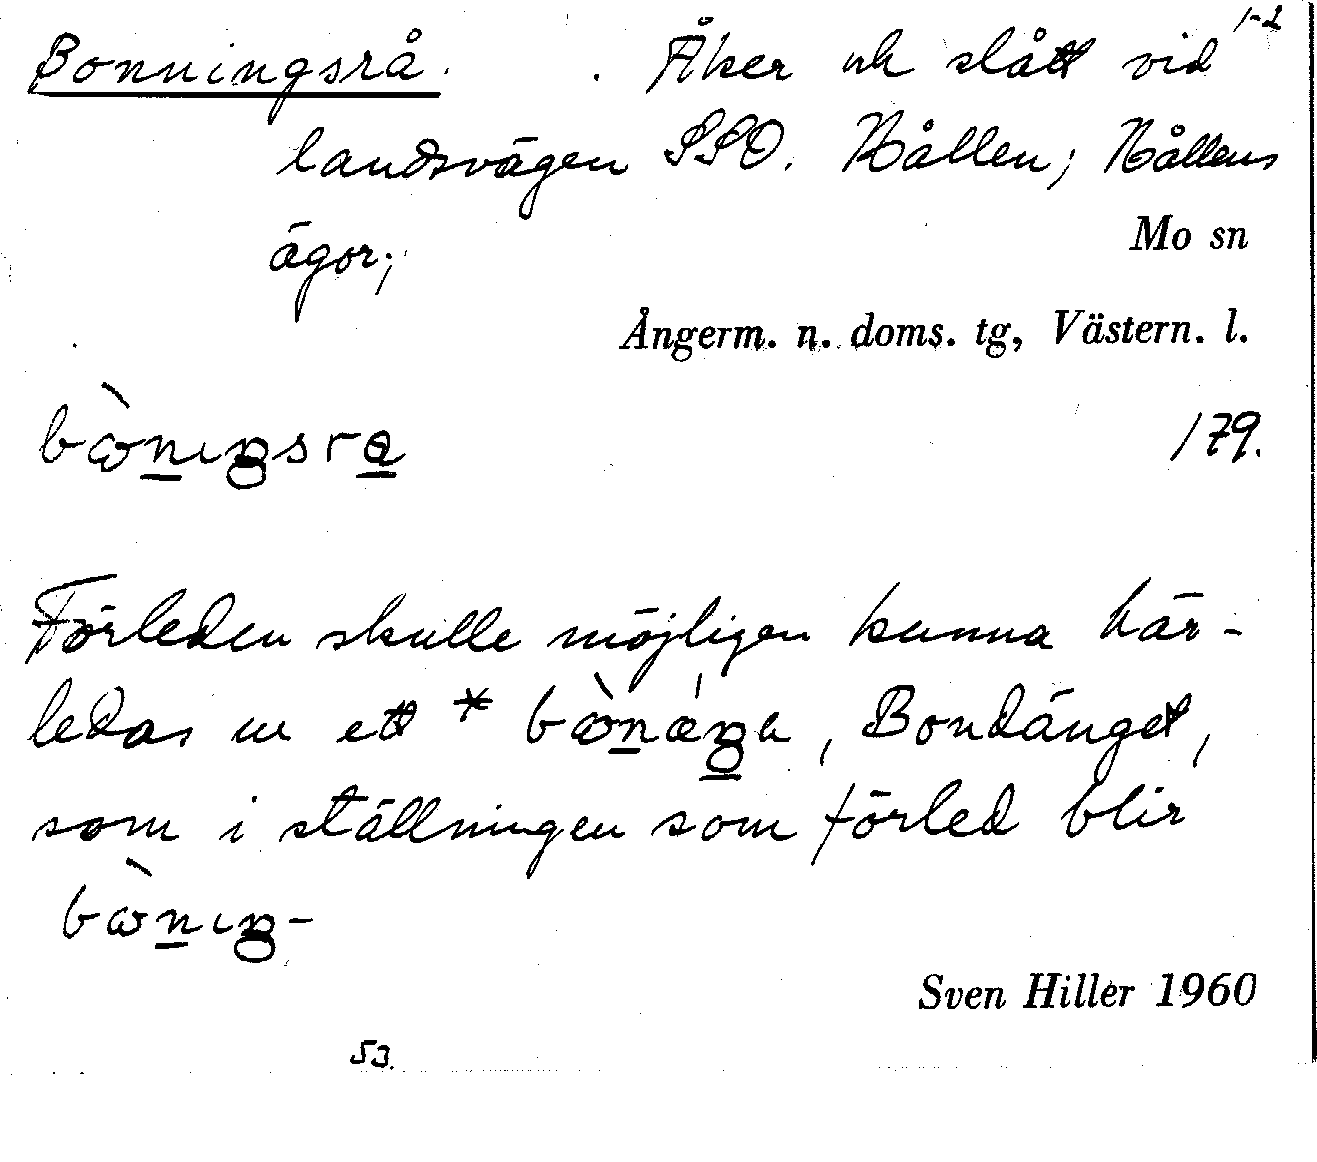 1-2
Bonningsrå. Åker och slått vid
landsvägen SSO. Hållen; Hållens
ägor;
Mo sn
Ångerm. n. doms. tg, Västern. l.
bɷ̀niŋsra
179.
Förleden skulle möjligen kunna här-
ledas ur ett * bɷ̀næ̀ŋa, Bondänget,
som i ställningen som förled blir
bɷ̀niŋ-
Sven Hiller 1960
53.